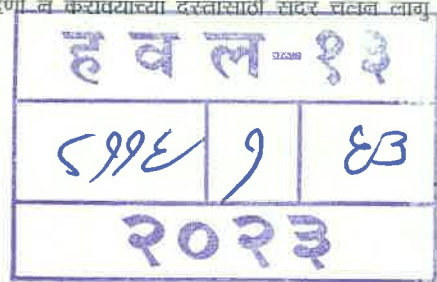 न करावयाच्या दस्तासाठी सदर चलन लागु
ह व ल - १३
८११६ १ ६३
२०२३